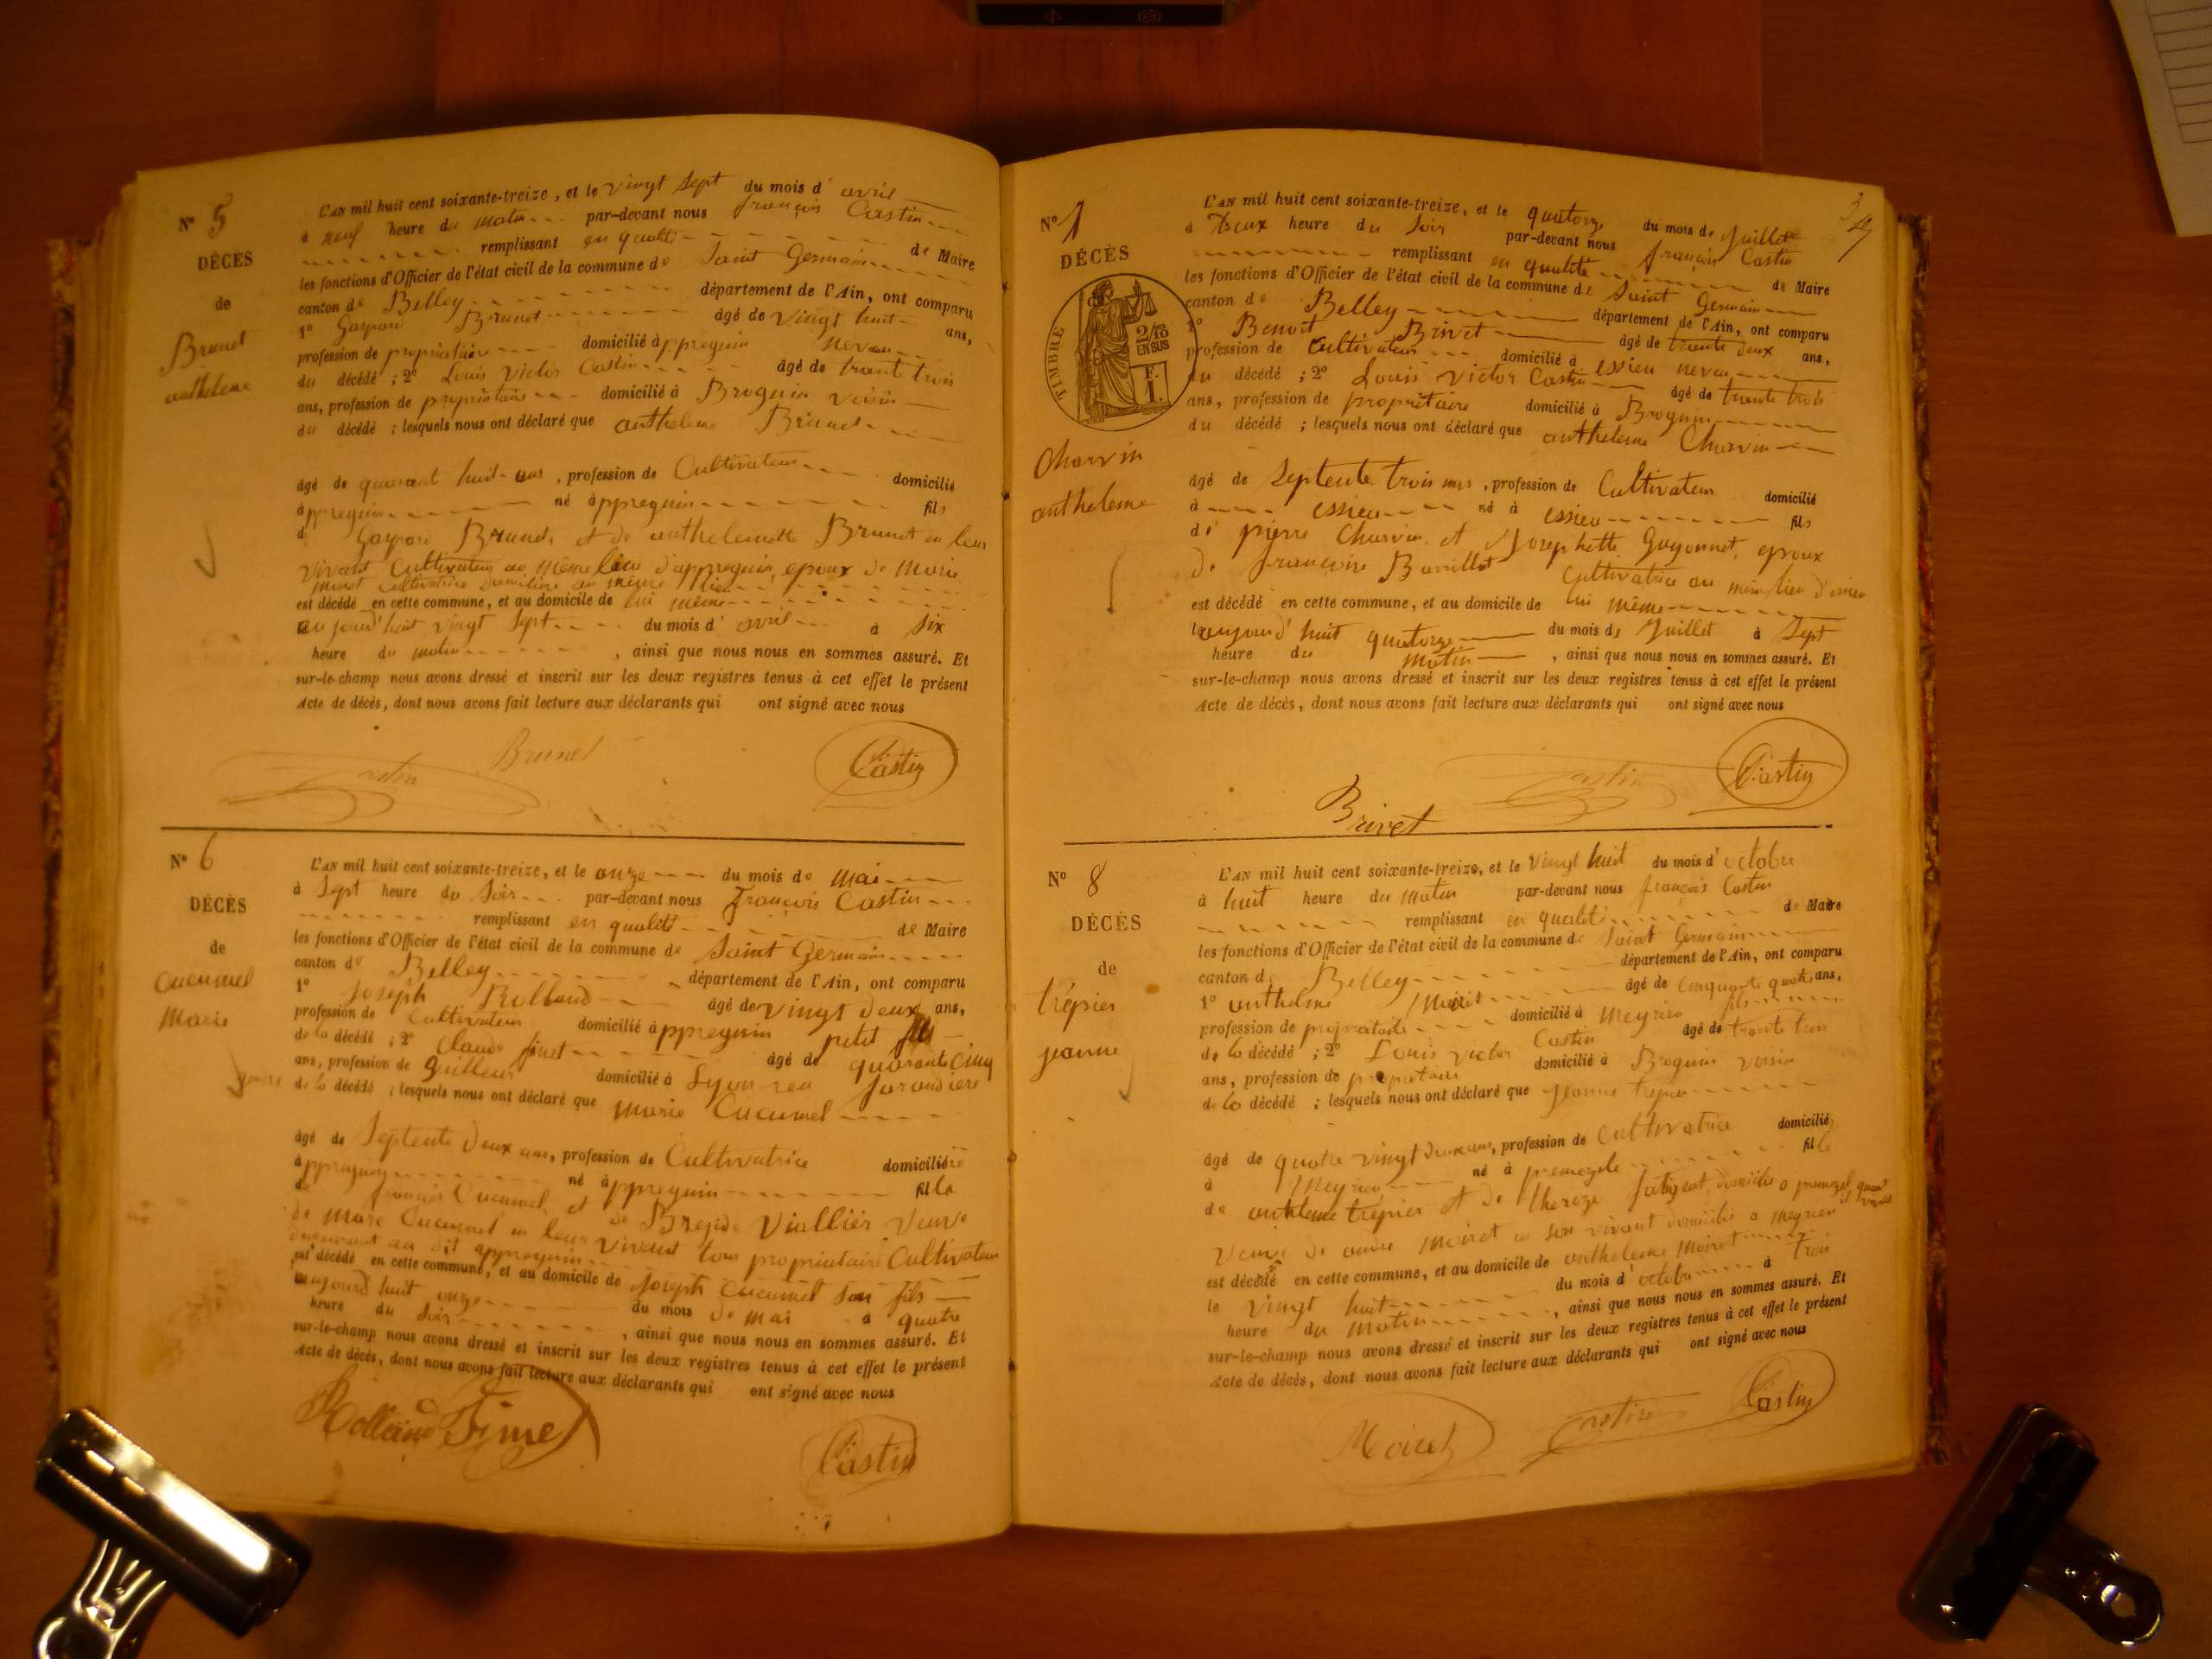 N° 5
DÉCÈS
de
Brunet
anthelme
L'AN mil huit cent soixante-treize, et le vingt sept du mois d' avril
à neuf heure du matin par-devant nous françois Castin
remplissant en qualité de Maire
les fonctions d'Officier de l'état civil de la commune de Saint Germain
canton de Belley département de l'Ain, ont comparu
1° Gaspard Brunet âgé de vingt huit ans,
profession de propriétaire domicilié à ppregnin neveu
du décédé ; 2° Louis Victor Castin âgé de trante trois
ans, profession de propriétaire domicilié à Brognin voisin
du décédé ; lesquels nous ont déclaré que anthelme Brunet
âgé de quarant huit ans, profession de Cultivateur domicilié
àppregnin né àppregnin fils
d Gaspard Brunet, et de anthelemette Brunet en leur
vivant Cultivateur au même lieu d'appregnin, epoux de Marie
moret cultivatrice domiciliée au même lieu
est décédé en cette commune, et au domicile de lui même
aujourd'huit vingt sept du mois d' avril à six
heure du matin, ainsi que nous nous en sommes assuré. Et
sur-le-champ nous avons dressé et inscrit sur les deux registres tenus à cet effet le présent
Acte de décès, dont nous avons fait lecture aux déclarants qui ont signé avec nous
Castin Brunet Castin
N° 6
DÉCÈS
de
Cucumel
Marie
L'AN mil huit cent soixante-treize, et le onze du mois de mai
à Sept heure du Soir par-devant nous François Castin
remplissant en qualité de Maire
les fonctions d'Officier de l'état civil de la commune de Saint Germain
canton de Belley département de l'Ain, ont comparu
1° Joseph Rolland âgé de vingt deux ans,
profession de Cultivateur domicilié àppregnin petit fils
de la décédé ; 2° Claude finet âgé de quarant cinq
ans, profession de domicilié à Lyon
de la décédé ; lesquels nous ont déclaré que Marie Cucumel
âgé de Septente deux ans, profession de Cultivatrice domiciliée
àppregnin né àppregnin fille
de françois Cucumel, et de Vialliér Veuve
de Marc Cucumel en leur vivant tous propriataire Cultivateur
demeurant au dit appregnin
est décédé en cette commune, et au domicile de Joseph Cucumel son fils
aujourd huit onze du mois de mai à quatre
heure du Soir, ainsi que nous nous en sommes assuré. Et
sur-le-champ nous avons dressé et inscrit sur les deux registres tenus à cet effet le présent
Acte de décès, dont nous avons fait lecture aux déclarants qui ont signé avec nous
Rolland Castin
3
N° 7
DÉCÈS
TIMBRE
2/10
EN SUS
F.
1.
Charvin
antheleme
L'AN mil huit cent soixante-treize, et le quatorze du mois de Juillet
à Deux heure du Soir par-devant nous françois Castin
remplissant en qualité de Maire
les fonctions d'Officier de l'état civil de la commune de Saint Germain
canton de Belley département de l'Ain, ont comparu
1° Benoit Brivet âgé de trente deux ans,
profession de Cultivateur domicilié à essieu neveu
du décédé ; 2° Louis Victor Castin âgé de trente trois
ans, profession de propriétaire domicilié à Brognin
du décédé ; lesquels nous ont déclaré que antheleme Charvin
âgé de Septente trois ans, profession de Cultivateur domicilié
à essieu né à essieu fils
de pierre Charvin, et Josephette Guyonnet, epoux
de françoise Barillot Cultivatrice au même lieu d'essieu
est décédé en cette commune, et au domicile de lui même
aujourd'huit quatorze du mois de Juillet à Sept
heure du matin, ainsi que nous nous en sommes assuré. Et
sur-le-champ nous avons dressé et inscrit sur les deux registres tenus à cet effet le présent
Acte de décès, dont nous avons fait lecture aux déclarants qui ont signé avec nous
Brivet Castin Castin
N° 8
DÉCÈS
de
trépier
jeanne
L'AN mil huit cent soixante-treize, et le vingt huit du mois d' octobre
à huit heure du matin par-devant nous françois Castin
remplissant en qualité de Maire
les fonctions d'Officier de l'état civil de la commune de Saint Germain
canton de Belley département de l'Ain, ont comparu
1° anthelme Moiret âgé de Cinquante quatre ans,
profession de propriataire domicilié à Meyrieu fils
de la décédé ; 2° Louis Victor Castin âgé de trante trois
ans, profession de propriataire domicilié à Brognin voisin
de la décédé ; lesquels nous ont déclaré que jeanne trépier
âgé de quatre vingt deux ans, profession de Cultivatrice domicilié
à Meyrieu né à premezele fille
de antheleme trépier et de thereze domicilié a
Veuve de Moiret en son vivant domicilié a Meyrieu
est décédé en cette commune, et au domicile de antheleme Moiret
le vingt huit du mois d' octobre à trois
heure du matin, ainsi que nous nous en sommes assuré. Et
sur-le-champ nous avons dressé et inscrit sur les deux registres tenus à cet effet le présent
Acte de décès, dont nous avons fait lecture aux déclarants qui ont signé avec nous
Moiret Castin Castin